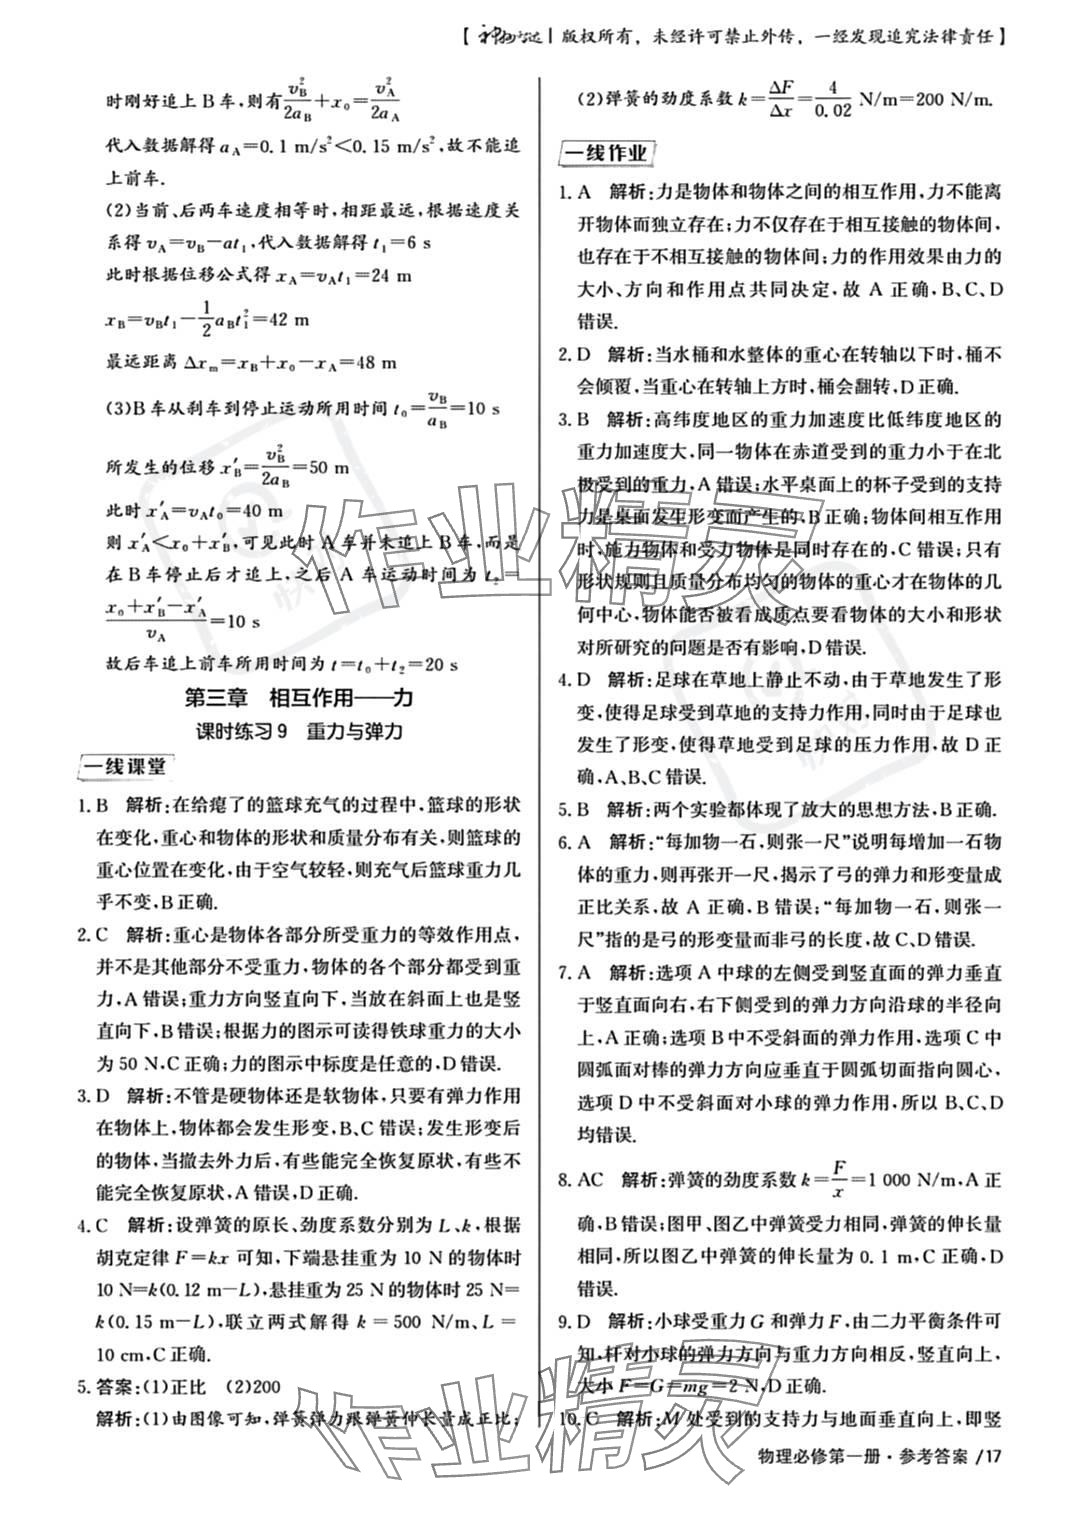 【神州云达|版权所有，未经许可禁止外传，一经发现追究法律责任】
时刚好追上B车,则有v_B²/2a_B+x₀=v_A²/2a_A
代入数据解得a_A=0.1 m/s²<0.15 m/s²,故不能追
上前车.
(2)当前、后两车速度相等时,相距最远,根据速度关
系得v_A=v_B-at₁,代入数据解得t₁=6 s
此时根据位移公式得x_A=v_At₁=24 m
x_B=v_Bt₁-1/2a_Bt₁²=42 m
最远距离Δx_m=x_B+x₀-x_A=48 m
(3)B车从刹车到停止运动所用时间t₀=v_B/a_B=10 s
所发生的位移x′_B=v_B²/2a_B=50 m
此时x′_A=v_At₀=40 m
则x′_A<x₀+x′_B,可见此时A车并未追上B车,而是
在B车停止后才追上,之后A车运动时间为t₂=
(x₀+x′_B-x′_A)/v_A=10 s
故后车追上前车所用时间为t=t₀+t₂=20 s
第三章 相互作用——力
课时练习9 重力与弹力
一线课堂
1. B 解析:在给瘪了的篮球充气的过程中,篮球的形状
在变化,重心和物体的形状和质量分布有关,则篮球的
重心位置在变化,由于空气较轻,则充气后篮球重力几
乎不变,B正确.
2. C 解析:重心是物体各部分所受重力的等效作用点,
并不是其他部分不受重力,物体的各个部分都受到重
力,A错误;重力方向竖直向下,当放在斜面上也是竖
直向下,B错误;根据力的图示可读得铁球重力的大小
为50 N,C正确;力的图示中标度是任意的,D错误.
3. D 解析:不管是硬物体还是软物体,只要有弹力作用
在物体上,物体都会发生形变,B、C错误;发生形变后
的物体,当撤去外力后,有些能完全恢复原状,有些不
能完全恢复原状,A错误,D正确.
4. C 解析:设弹簧的原长、劲度系数分别为L、k,根据
胡克定律F=kx可知,下端悬挂重为10 N的物体时
10 N=k(0.12 m-L),悬挂重为25 N的物体时25 N=
k(0.15 m-L),联立两式解得k=500 N/m、L=
10 cm,C正确.
5. 答案:(1)正比 (2)200
解析:(1)由图像可知,弹簧弹力跟弹簧伸长量成正比;
(2)弹簧的劲度系数k=ΔF/Δx=4/0.02 N/m=200 N/m.
一线作业
1. A 解析:力是物体和物体之间的相互作用,力不能离
开物体而独立存在;力不仅存在于相互接触的物体间,
也存在于不相互接触的物体间;力的作用效果由力的
大小、方向和作用点共同决定,故A正确,B、C、D
错误.
2. D 解析:当水桶和水整体的重心在转轴以下时,桶不
会倾覆,当重心在转轴上方时,桶会翻转,D正确.
3. B 解析:高纬度地区的重力加速度比低纬度地区的
重力加速度大,同一物体在赤道受到的重力小于在北
极受到的重力,A错误;水平桌面上的杯子受到的支持
力是桌面发生形变而产生的,B正确;物体间相互作用
时,施力物体和受力物体是同时存在的,C错误;只有
形状规则且质量分布均匀的物体的重心才在物体的几
何中心,物体能否被看成质点要看物体的大小和形状
对所研究的问题是否有影响,D错误.
4. D 解析:足球在草地上静止不动,由于草地发生了形
变,使得足球受到草地的支持力作用,同时由于足球也
发生了形变,使得草地受到足球的压力作用,故D正
确,A、B、C错误.
5. B 解析:两个实验都体现了放大的思想方法,B正确.
6. A 解析:“每加物一石,则张一尺”说明每增加一石物
体的重力,则再张开一尺,揭示了弓的弹力和形变量成
正比关系,故A正确,B错误;“每加物一石,则张一
尺”指的是弓的形变量而非弓的长度,故C、D错误.
7. A 解析:选项A中球的左侧受到竖直面的弹力垂直
于竖直面向右,右下侧受到的弹力方向沿球的半径向
上,A正确;选项B中不受斜面的弹力作用,选项C中
圆弧面对棒的弹力方向应垂直于圆弧切面指向圆心,
选项D中不受斜面对小球的弹力作用,所以B、C、D
均错误.
8. AC 解析:弹簧的劲度系数k=F/x=1 000 N/m,A正
确,B错误;图甲、图乙中弹簧受力相同,弹簧的伸长量
相同,所以图乙中弹簧的伸长量为0.1 m,C正确,D
错误.
9. D 解析:小球受重力G和弹力F,由二力平衡条件可
知,杆对小球的弹力方向与重力方向相反,竖直向上,
大小F=G=mg=2 N,D正确.
10. C 解析:M处受到的支持力与地面垂直向上,即竖
物理必修第一册·参考答案 /17
作业精灵
作业精灵